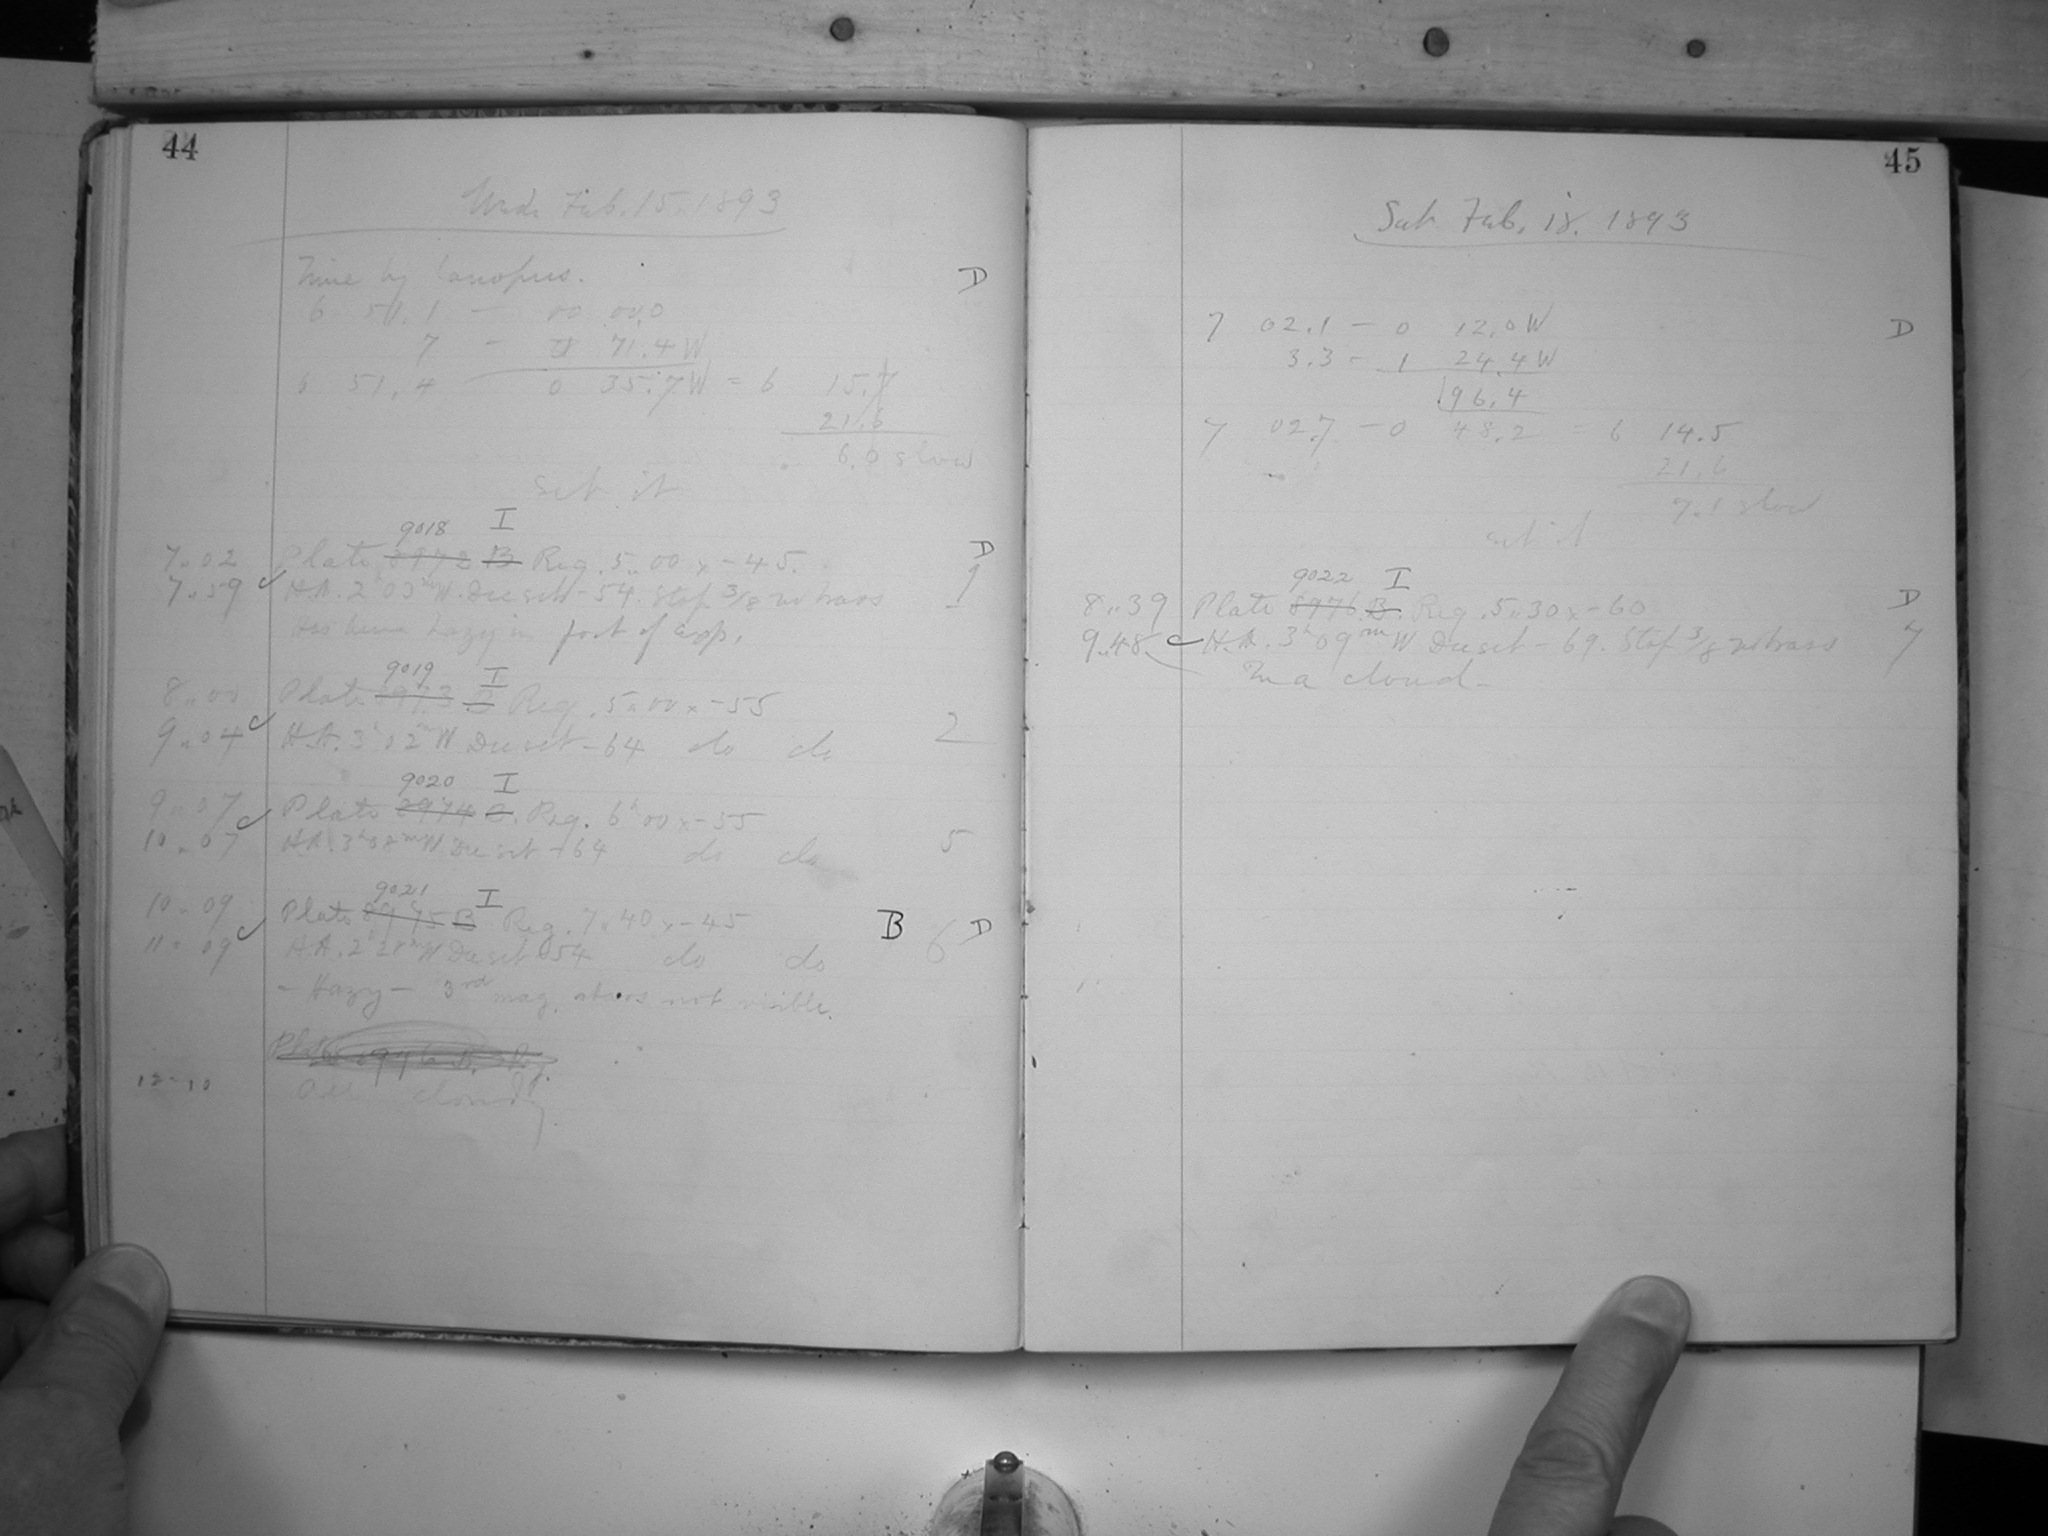 44
Wed. Feb. 15. 1893
Time by Canopus. D
6 51.1 - 00 00.0
7 - 71.4 W
6 51.4 0 35.7 W = 6 15.7
21.6
6.0 slow
set it
9018 I
7.02 Plate 8972 B Reg. 5.00 x -45. D
7.59 H.A. 2h 03m W. Dec set -54. Stop 3/8 no brass 1
hazy in part of exp.
9019 I
8.00 Plate 8973 B Reg. 5.00 x -55
9.04 H.A. 3h 02m W Dec set -64 do do 2
9020 I
9.07 Plate 8974 B. Reg. 6h 00 x -55
10.07 H.A. 3h 08m W Dec set -64 do do 5
9021 I
10.09 Plate 8975 B Reg. 7.40 x -45 B 6 D
11.09 H.A. 2h 28m W Dec set -54 do do
- Hazy - 3rd mag. stars not visible.
Plate 8976 B. Reg.
12-10 All cloudy
45
Sat Feb. 18. 1893
7 02.1 - 0 12.0 W D
3.3 - 1 24.4 W
96.4
7 02.7 - 0 48.2 = 6 14.5
21.6
7.1 slow
set it
9022 I
8.39 Plate 8976 B. Reg. 5.30 x -60 D
9.48 H.A. 3h 09m W Dec set -69. Stop 3/8 no brass 7
In a cloud -